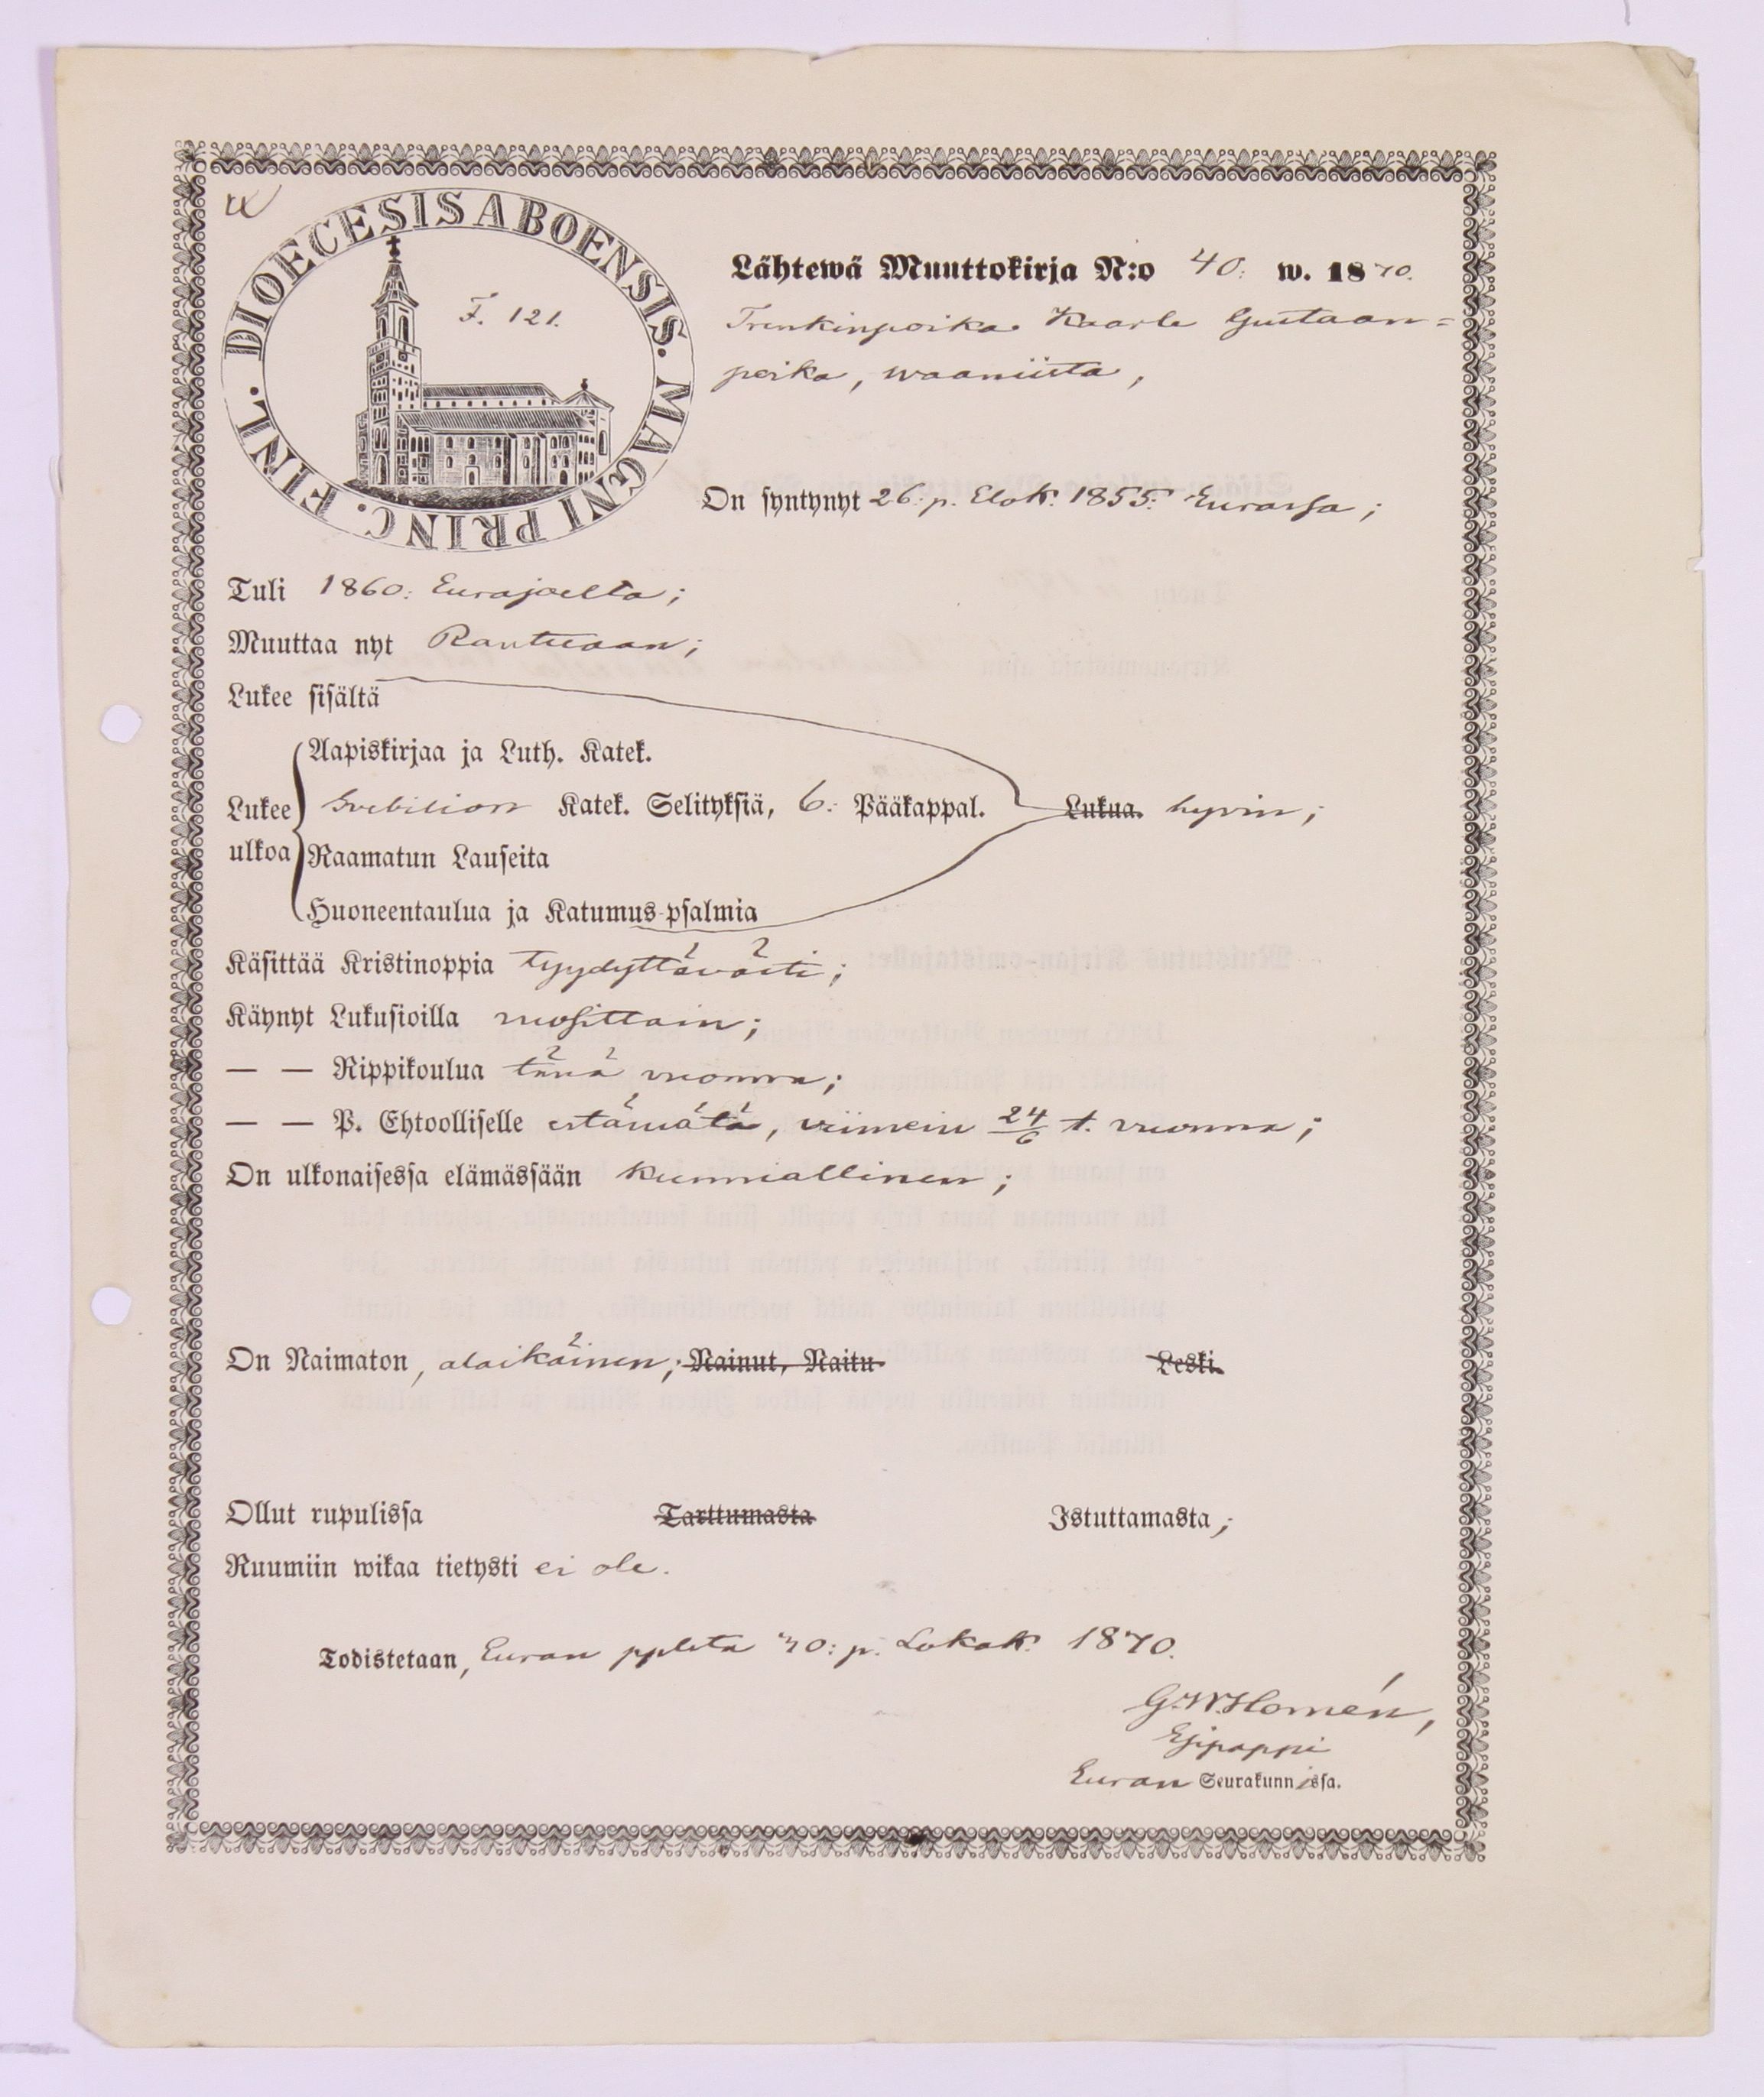 DIOECESIS ABOENSIS. MAGNI PRINC. FINL.
F. 121.
Lähtewä Muuttokirja N:o 40: w. 1870.
Trenkinpoika Kaarle Gustaan=
poika, waaniista,
On syntynyt 26: p. Elok: 1855: Eurassa;
Tuli 1860: Eurajoelta;
Muuttaa nyt Rantuaan;
Lukee sisältä
Aapiskirjaa ja Luth. Katek.
Lukee ulkoa Svebilion Katek. Selityksiä, 6: Pääkappal. Lukua. hyvin;
Raamatun Lauseita
Huoneentaulua ja Katumus-psalmia
Käsittää Kristinoppia tyydyttävästi;
Käynyt Lukusioilla vuosittain;
— — Rippikoulua tänä vuonna;
— — P. Ehtoolliselle estämätä, viimein 24/6 t. vuonna;
On ulkonaisessa elämässään kunniallinen;
On Naimaton, alaikäinen; Nainut, Naitu Leski.
Ollut rupulissa Tarttumasta Istuttamasta;
Ruumiin wikaa tietysti ei ole.
Todistetaan, Euran pplsta 30: p. Lokak: 1870.
G. W. Homén,
Esipappi
Euran Seurakunnissa.